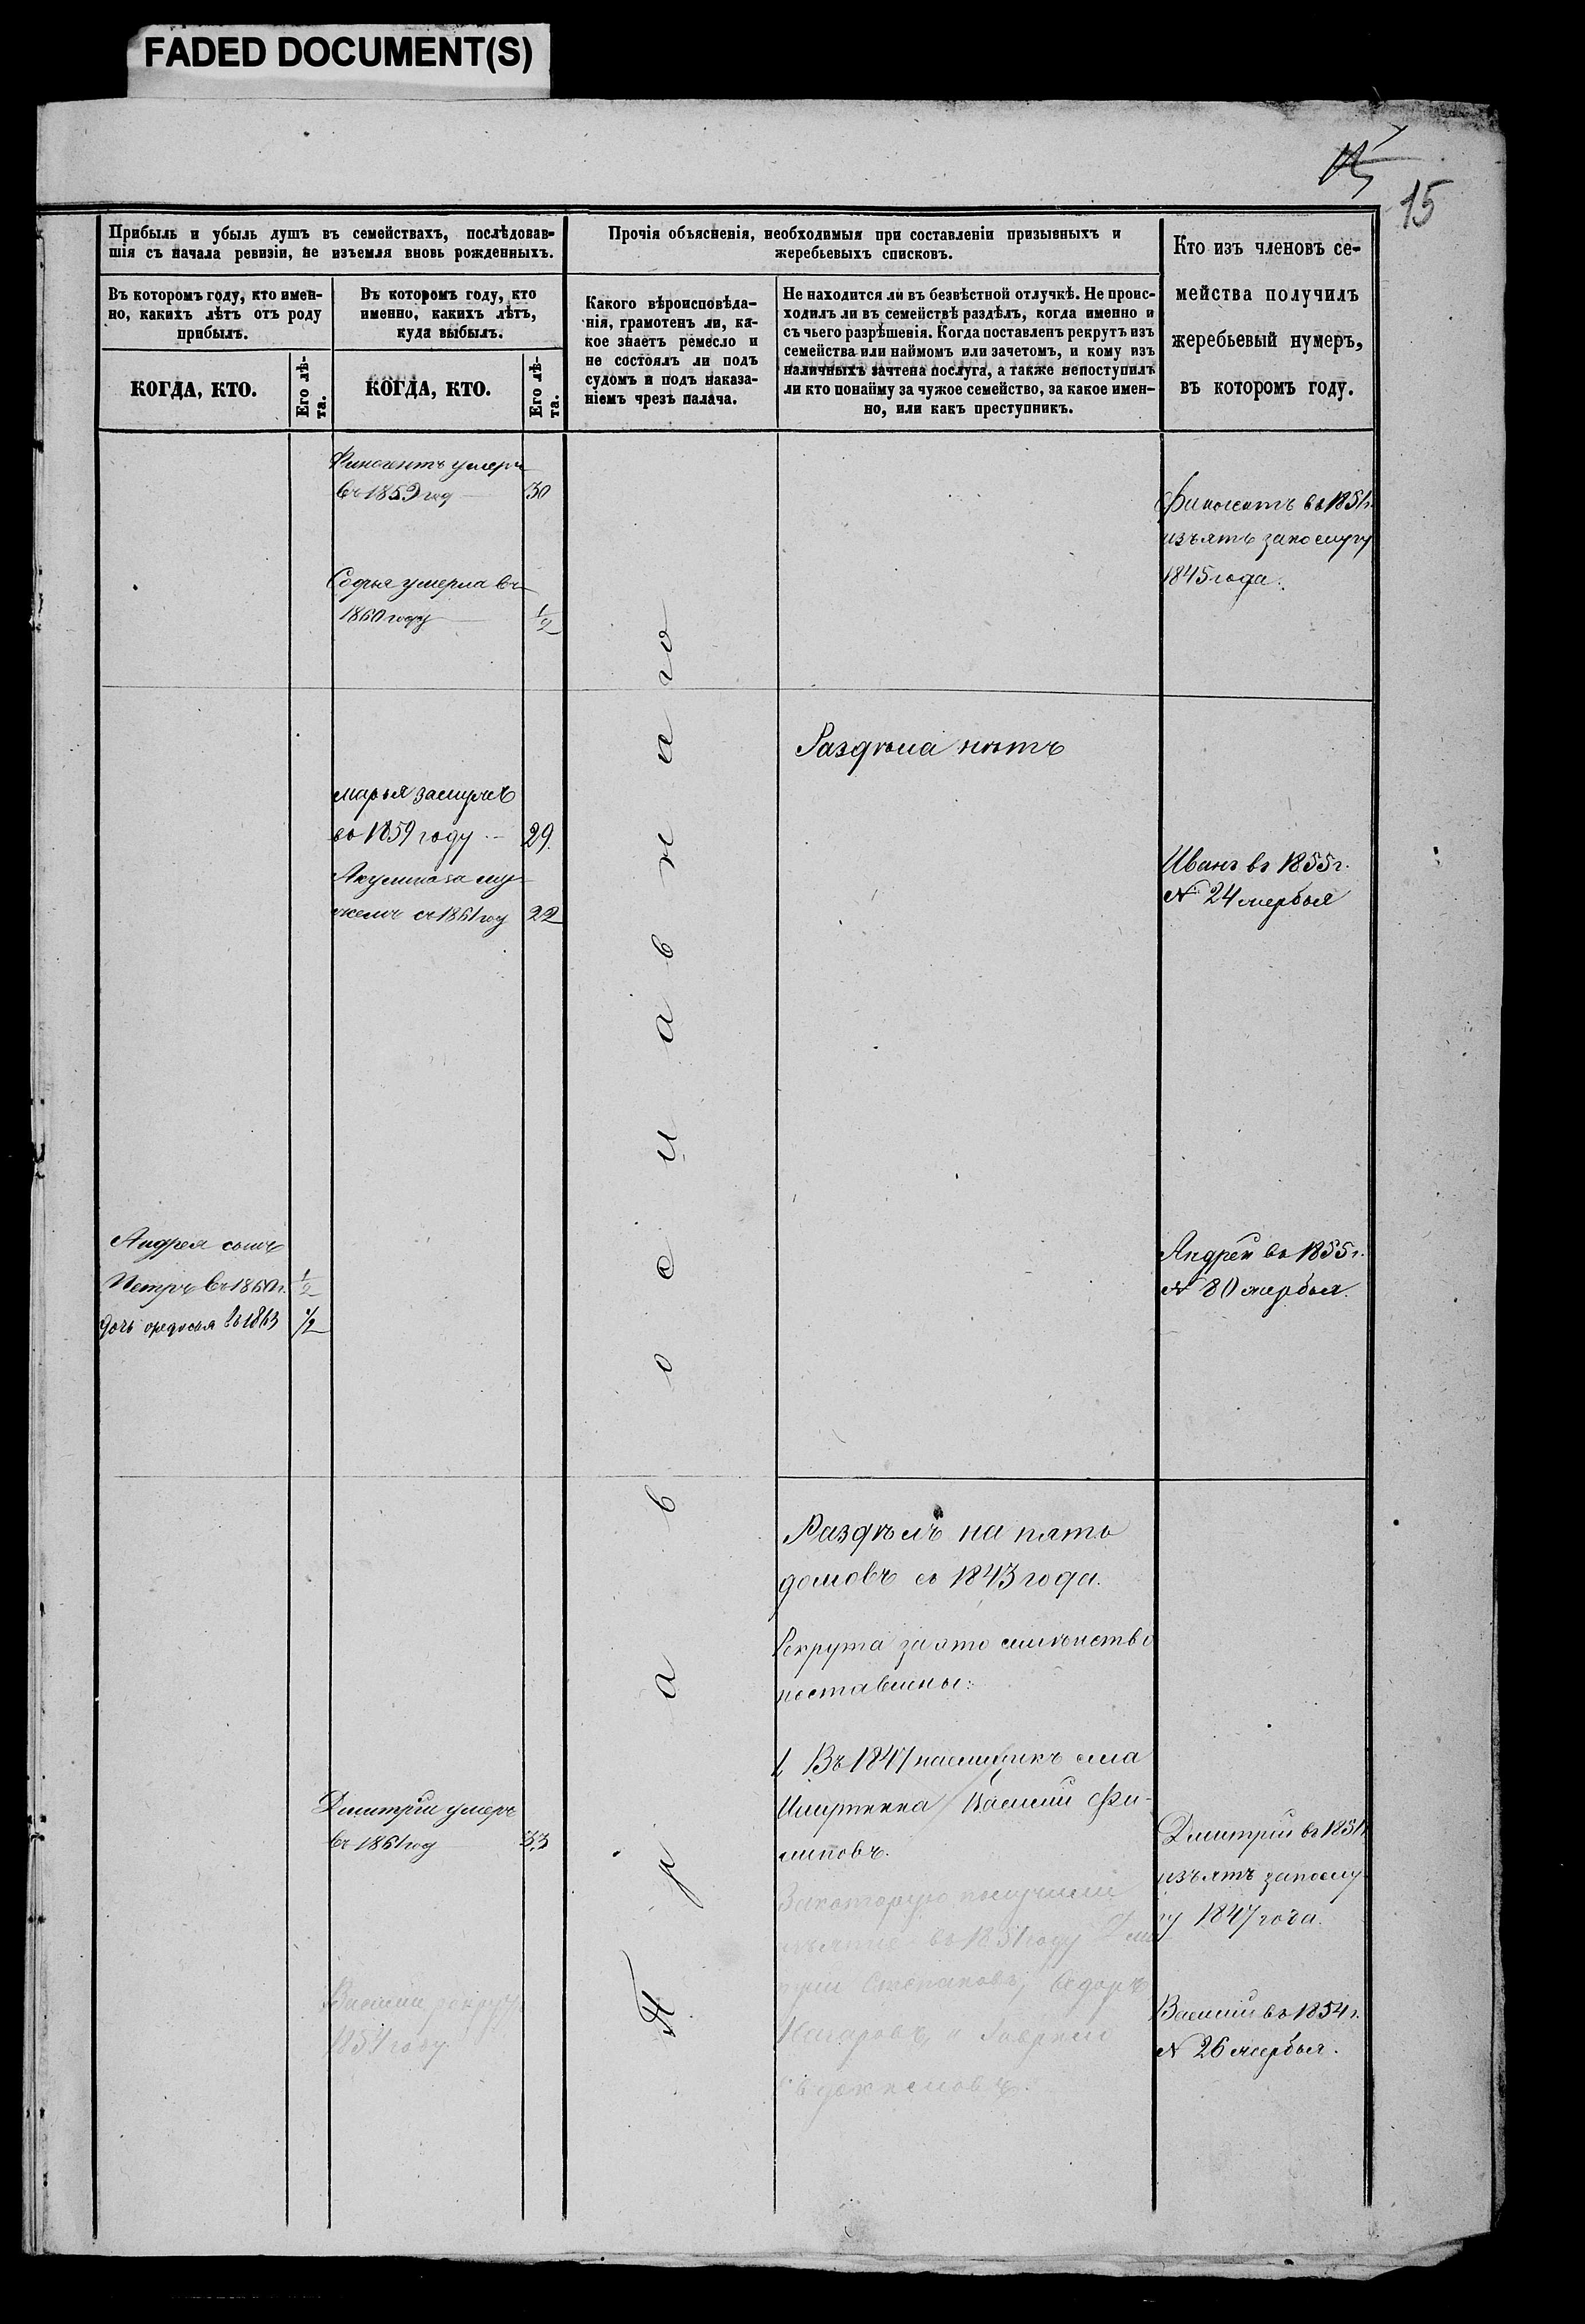 FADED DOCUMENT(S)
15
15
Прибыль и убыль душъ въ семействахъ, послѣдовав-
шія съ начала ревизіи, не изъемля вновь рожденныхъ.
Прочія объясненія, необходимыя при составленіи призывныхъ и
жеребьевыхъ списковъ.
Кто изъ членовъ се-
мейства получилъ
жеребьевый нумеръ,
въ которомъ году.
Въ которомъ году, кто имен-
но, какихъ лѣтъ отъ роду
прибылъ.
Въ которомъ году, кто
именно, какихъ лѣтъ,
куда выбылъ.
Какого вѣроисповѣда-
нія, грамотенъ ли, ка-
кое знаетъ ремесло и
не состоялъ ли подъ
судомъ и подъ наказа-
ніемъ чрезъ палача.
Не находится ли въ безвѣстной отлучкѣ. Не проис-
ходилъ ли въ семействѣ раздѣлъ, когда именно и
съ чьего разрѣшенія. Когда поставленъ рекрутъ изъ
семейства или наймомъ или зачетомъ, и кому изъ
наличныхъ зачтена послуга, а также непоступилъ
ли кто понайму за чужое семейство, за какое имен-
но, или какъ преступникъ.
КОГДА, КТО.
Его лѣ-
та.
КОГДА, КТО.
Его лѣ-
та.
Финогентъ умеръ
въ 1859 год 30
Финогентъ въ 1851г.
изъятъ за послугу
1845 года.
Софья умерла въ
1860 году 1/2
Православнаго
Раздѣла нѣтъ
марья замужъ
въ 1859 году 29.
Акулина за му-
жемъ съ 1861 году 22
Иванъ въ 1855г.
№ 24 жербья
Андрея сынъ
Петръ въ 1860г. 1/2
дочь въ 1863 1/2
Андрей въ 1855г.
№ 80 жербья.
Раздѣлъ на пять
домовъ съ 1843 года.
Рекрута за это семѣйство
поставлены:
1, Въ 1847 наемщикъ
Василій Фи-
липовъ.
За которую получили
изъятіе въ 1851 году Дми
трій Степановъ,
Назаровъ, и Гаврило
Дмитрій умеръ
въ 1861 год 33
Василій рекрут
1854 году.
Дмитрій въ 1851г
изъятъ за послу
гу 1847 года.
Василій въ 1854г.
№ 26 жербья.